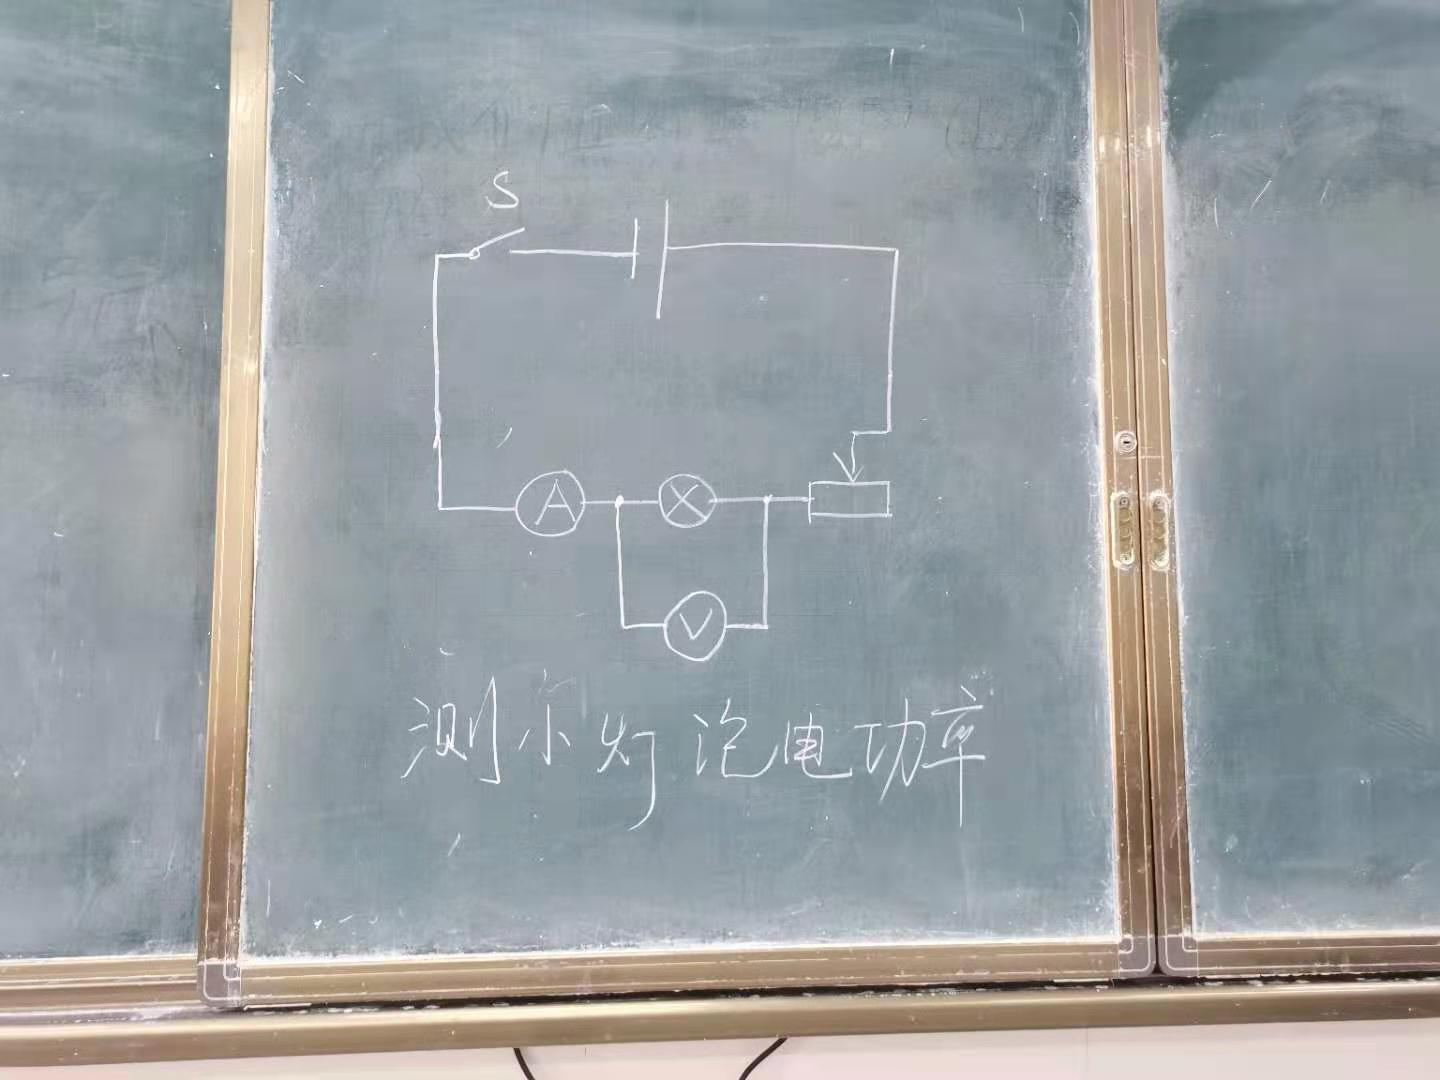 S
A
V
测小灯泡电功率